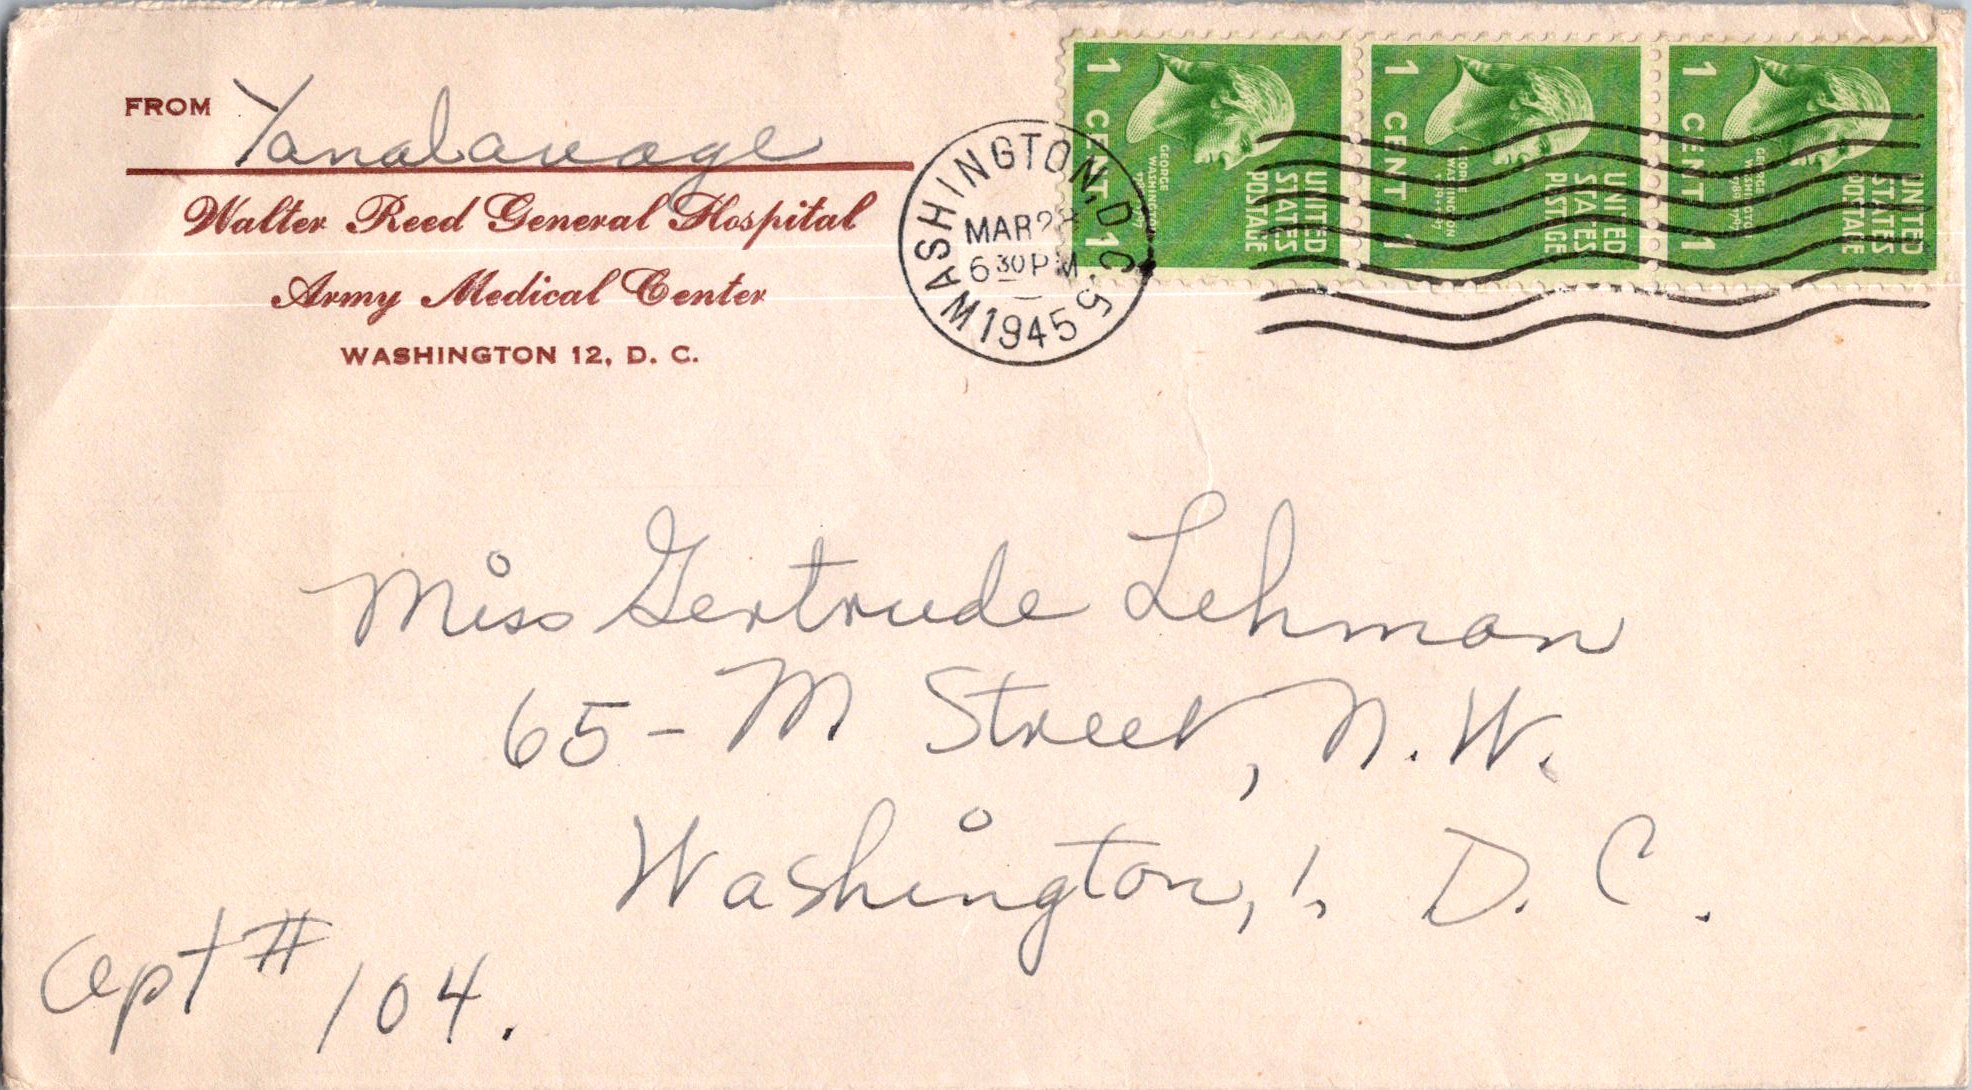 FROM Yanalavage
Walter Reed General Hospital
Army Medical Center
WASHINGTON 12, D. C.
WASHINGTON, D.C. 5
MAR 28
6 30 PM
1945
1 CENT 1
GEORGE WASHINGTON
UNITED STATES POSTAGE
1 CENT 1
GEORGE WASHINGTON
1789-1797
UNITED STATES POSTAGE
1 CENT 1
GEORGE WASHINGTON
1789-1797
UNITED STATES POSTAGE
Miss Gertrude Lehman
65 - M Street, N. W.
Washington, 1, D. C.
Apt # 104.